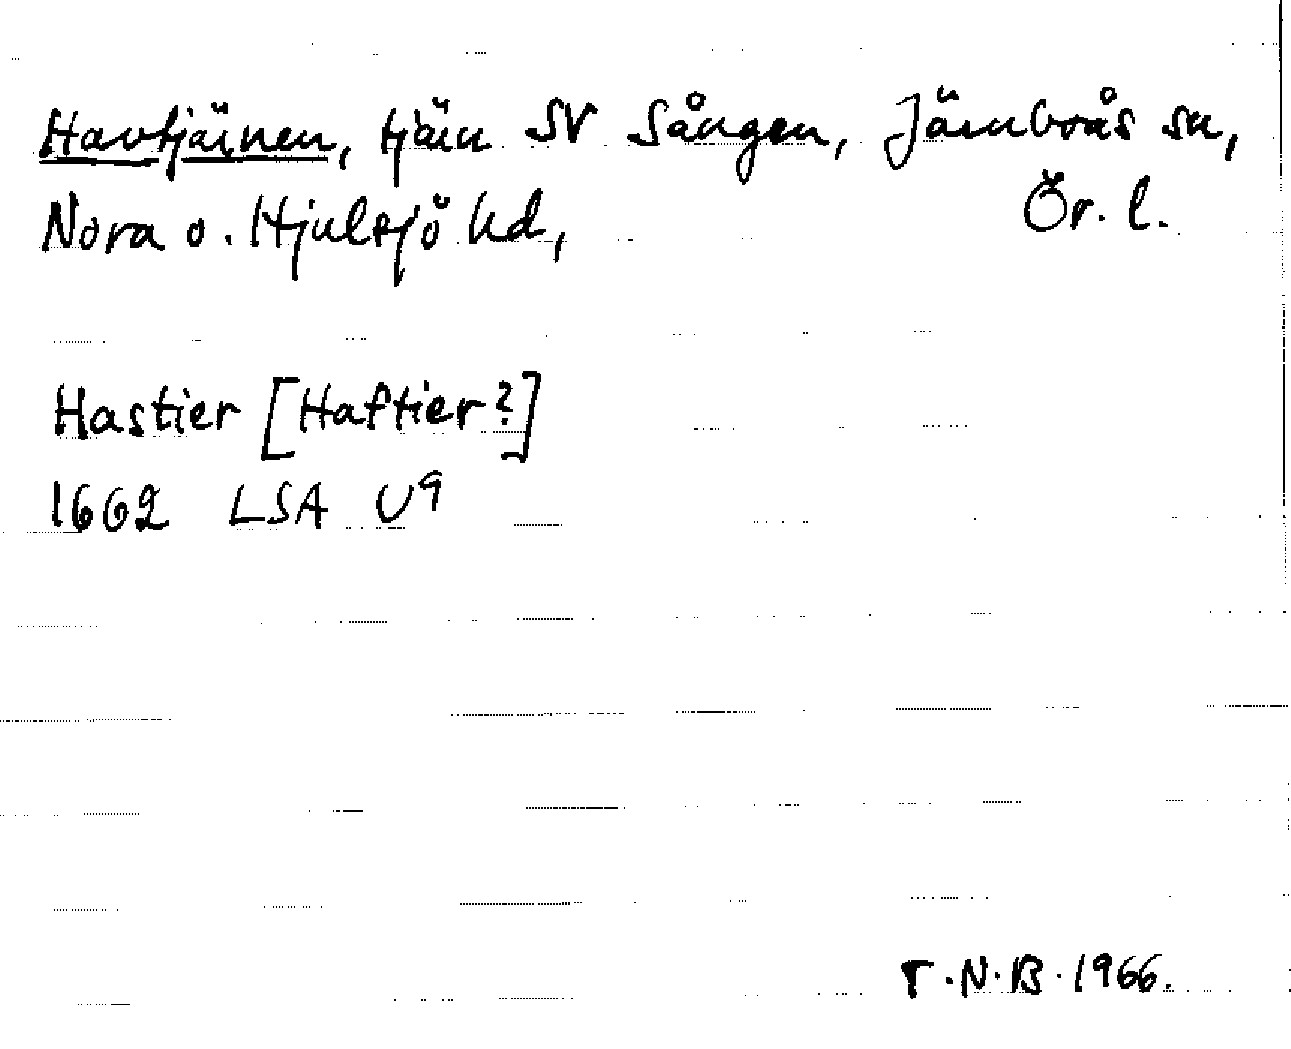 Havtjärnen, tjärn SV Sången, Järnboås sn,
Nora o. Hjulsjö hd, Ör. l.
Hastier [Haftier?]
1662 LSA U9
T.N.B. 1966.